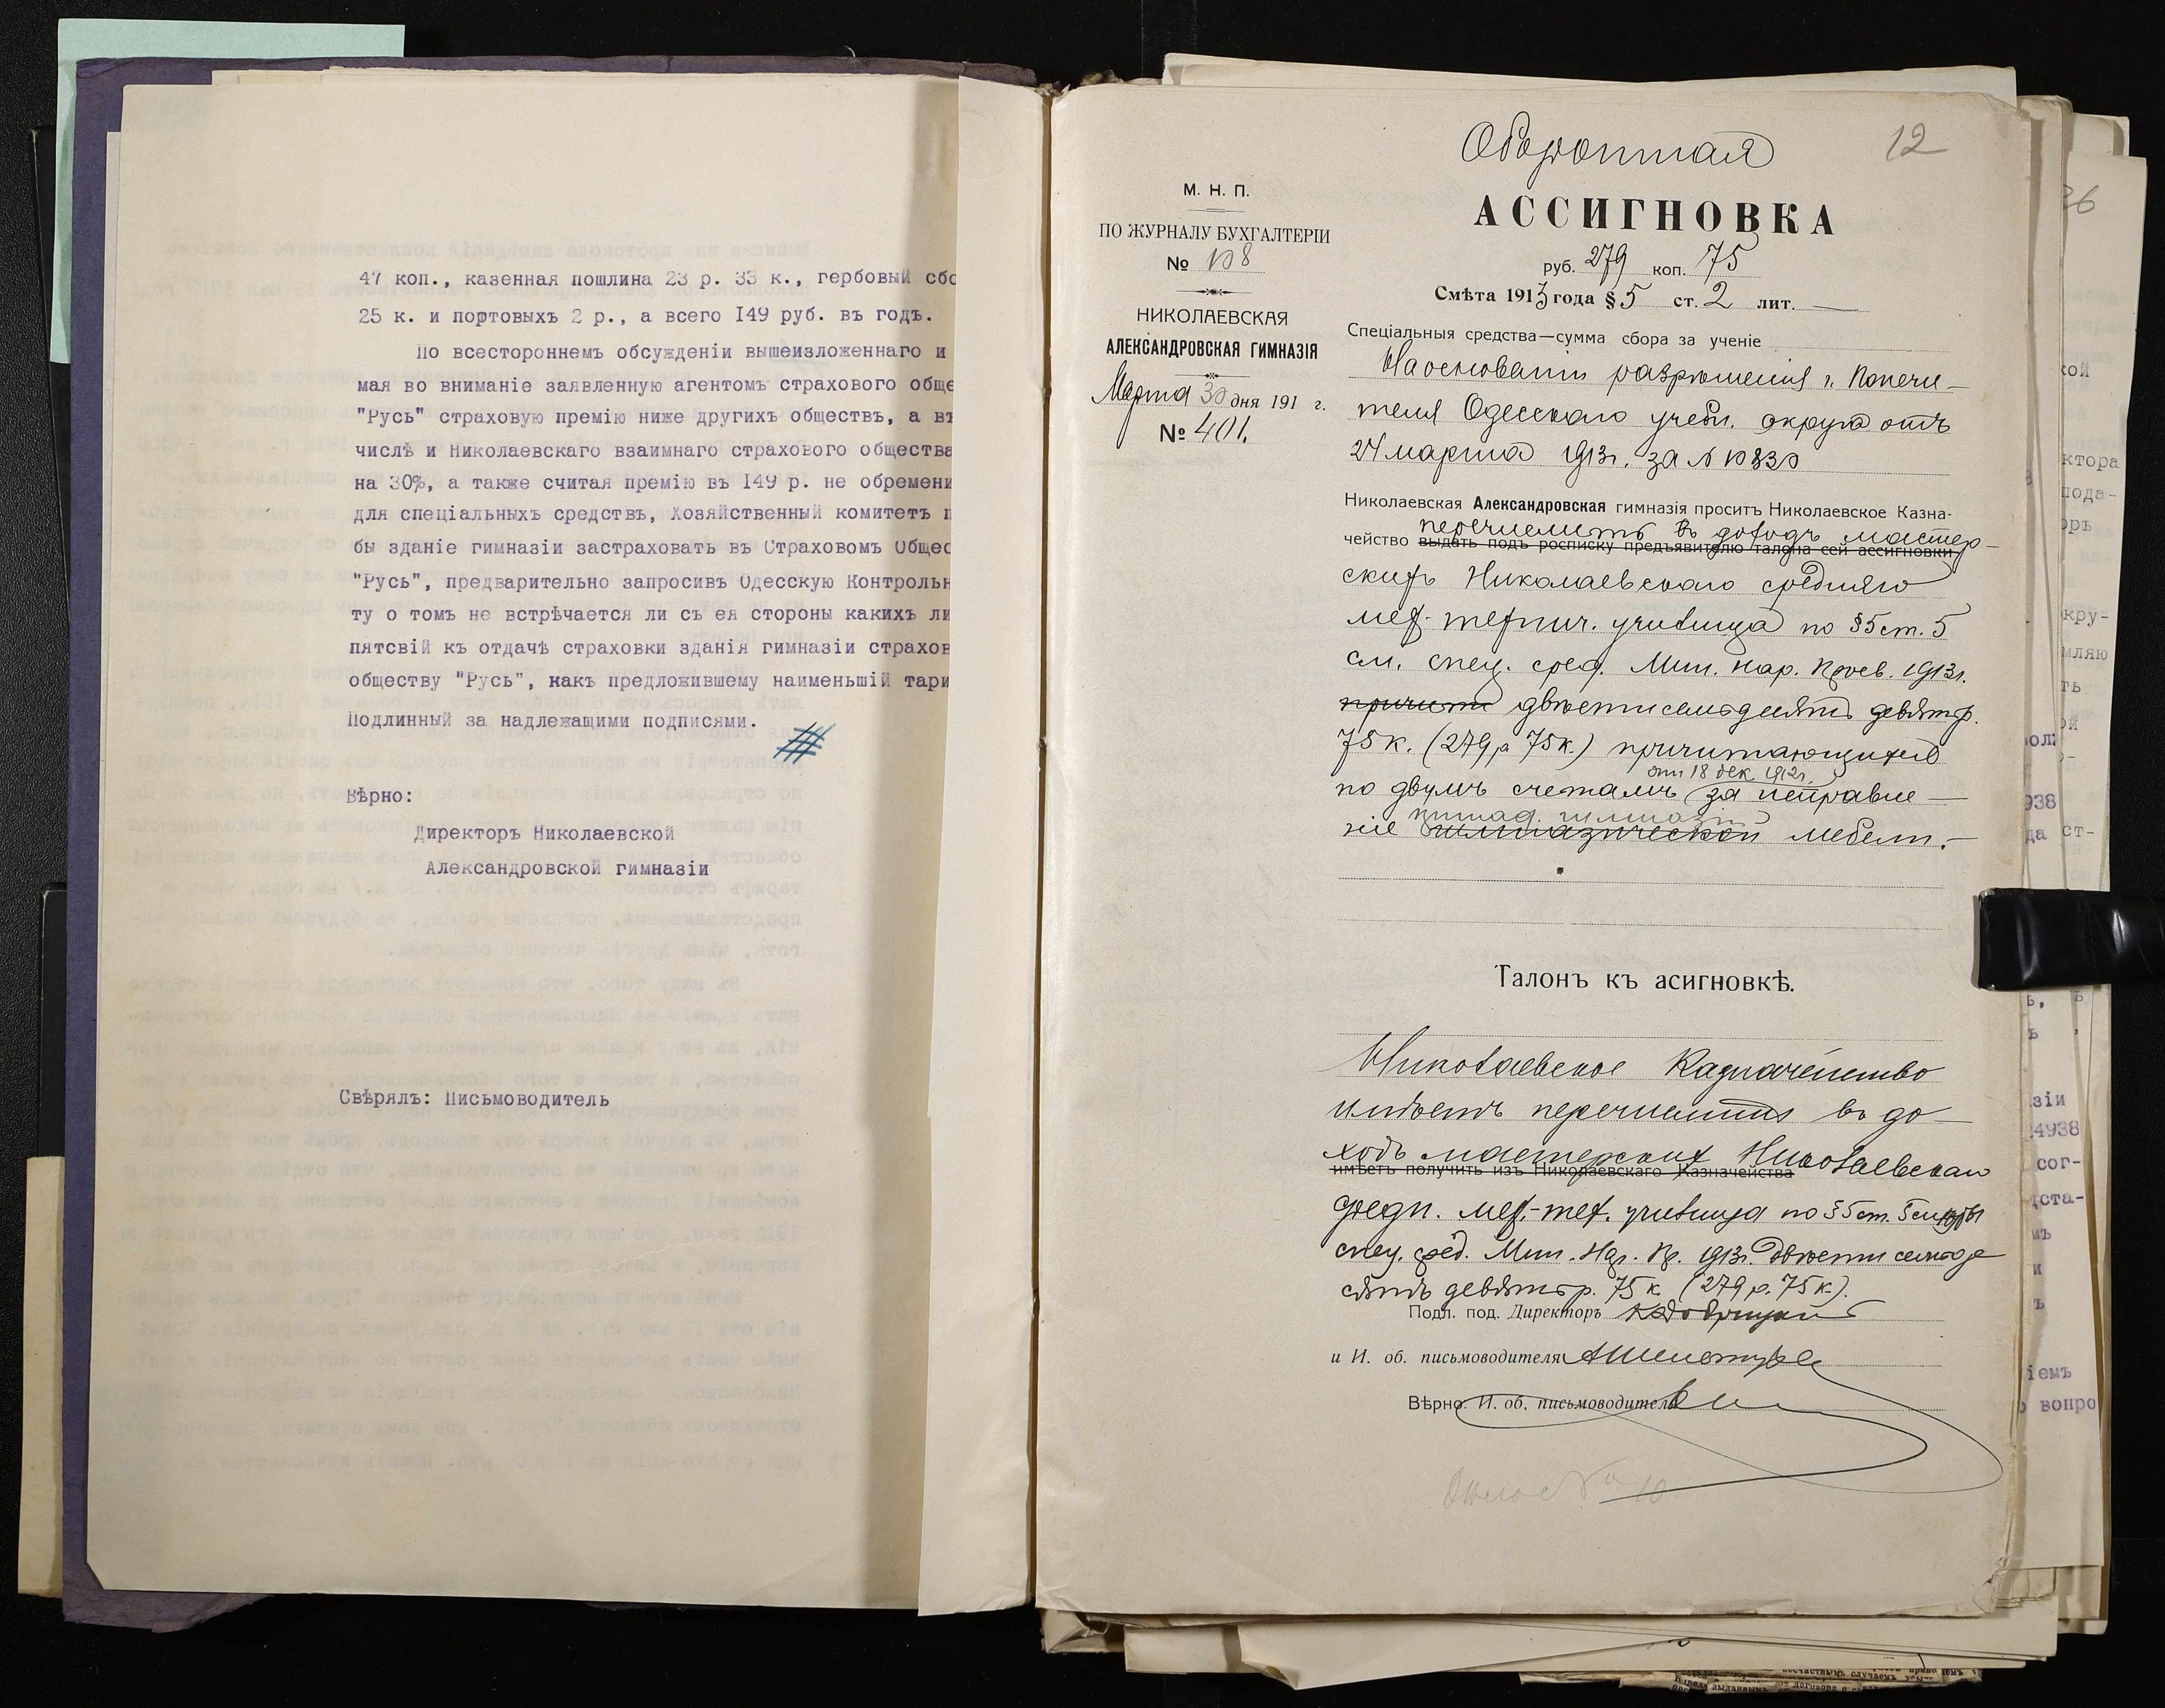 47 коп., казенная пошлина 23 р. 33 к., гербовый сбо
25 к. и портовыхъ 2 р., а всего 149 руб. въ годъ.
По всестороннемъ обсужденіи вышеизложеннаго и
мая во вниманіе заявленную агентомъ страхового обще
"Русь" страховую премію ниже другихъ обществъ, а въ
числѣ и Николаевскаго взаимнаго страхового общества
на 30%, а также считая премію въ 149 р. не обремени
для спеціальныхъ средствъ, Хозяйственный комитетъ п
бы зданіе гимназіи застраховать въ Страховомъ Общес
"Русь", предварительно запросивъ Одесскую Контрольн
ту о томъ не встрѣчается ли съ ея стороны какихъ ли
пятсвій къ отдачѣ страховки зданія гимназіи страхов
обществу "Русь", какъ предложившему наименьшій тари
Подлинный за надлежащими подписями.
Вѣрно:
Директоръ Николаевской
Александровской гимназіи
Свѣрялъ: Письмоводитель
Оборотная
12
М. Н. П.
ПО ЖУРНАЛУ БУХГАЛТЕРІИ
№ 108
НИКОЛАЕВСКАЯ
АЛЕКСАНДРОВСКАЯ ГИМНАЗІЯ
Марта 30 дня 191 г.
№ 401.
АССИГНОВКА
руб. 279 коп. 75
Смѣта 1913 года § 5 ст. 2 лит. —
Спеціальныя средства—сумма сбора за ученіе
На основаніи разрѣшенія г. Попечи-
теля Одесскаго учебн. округа отъ
24 марта 1913г. за № 10830
Николаевская Александровская гимназія проситъ Николаевское Казна-
перечислить въ доходъ мастер-
чейство выдать подъ росписку предъявителю талона сей ассигновки
скихъ Николаевскаго средняго
мех-технич. училища по §5 ст. 5
см. спец. сред. Мин. нар. Просв. 1913г.
двѣсти семьдесятъ девять р.
75 к. (279 р 75 к.) причитающихся
отъ 18 дек. 1912г.
по двумъ счетамъ за исправле-
ніе гимназической мебели.—
Талонъ къ асигновкѣ.
Николаевское Казначейство
имѣетъ перечислить въ до-
ходъ мастерскихъ Николаевскаго
имѣетъ получить изъ Николаевскаго Казначейства
средн. мех.-тех. училища по §5 ст. 5 смѣты
спец. сред. Мин. Нар. Пр. 1913г. Двѣсти семьде
сятъ девять р. 75 к (279 р. 75 к.).
Подл. под. Директоръ
и И. об. письмоводителя
Вѣрно: И. об. письмоводителя